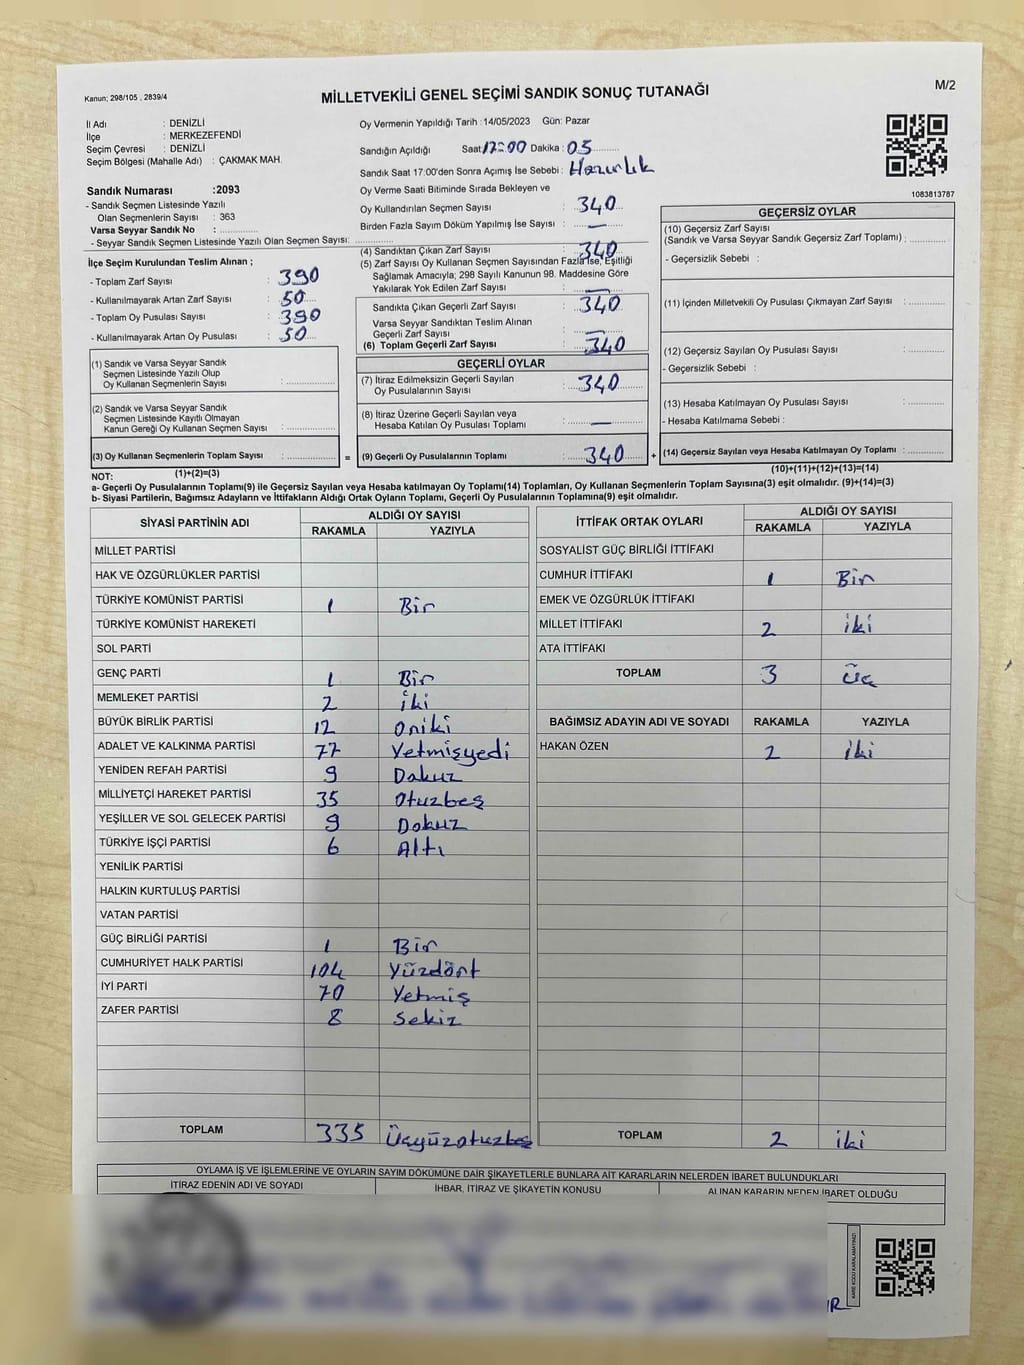 Kanun; 298/105 , 2839/4
MİLLETVEKİLİ GENEL SEÇİMİ SANDIK SONUÇ TUTANAĞI
M/2
İl Adı : DENİZLİ
İlçe : MERKEZEFENDİ
Seçim Çevresi : DENİZLİ
Seçim Bölgesi (Mahalle Adı) : ÇAKMAK MAH.
Sandık Numarası :2093
- Sandık Seçmen Listesinde Yazılı
Olan Seçmenlerin Sayısı : 363
Varsa Seyyar Sandık No :
- Seyyar Sandık Seçmen Listesinde Yazılı Olan Seçmen Sayısı:
İlçe Seçim Kurulundan Teslim Alınan ;
- Toplam Zarf Sayısı : 390
- Kullanılmayarak Artan Zarf Sayısı : 50
- Toplam Oy Pusulası Sayısı : 390
- Kullanılmayarak Artan Oy Pusulası : 50
(1) Sandık ve Varsa Seyyar Sandık
Seçmen Listesinde Yazılı Olup
Oy Kullanan Seçmenlerin Sayısı :
(2) Sandık ve Varsa Seyyar Sandık
Seçmen Listesinde Kayıtlı Olmayan
Kanun Gereği Oy Kullanan Seçmen Sayısı :
(3) Oy Kullanan Seçmenlerin Toplam Sayısı : =
Oy Vermenin Yapıldığı Tarih :14/05/2023 Gün: Pazar
Sandığın Açıldığı Saat:17:00 Dakika : 05
Sandık Saat 17:00'den Sonra Açımış İse Sebebi : Hazırlık
Oy Verme Saati Bitiminde Sırada Bekleyen ve
Oy Kullandırılan Seçmen Sayısı : 340
Birden Fazla Sayım Döküm Yapılmış İse Sayısı : —
(4) Sandıktan Çıkan Zarf Sayısı : 340
(5) Zarf Sayısı Oy Kullanan Seçmen Sayısından Fazla İse, Eşitliği
Sağlamak Amacıyla; 298 Sayılı Kanunun 98. Maddesine Göre
Yakılarak Yok Edilen Zarf Sayısı : —
Sandıkta Çıkan Geçerli Zarf Sayısı : 340
Varsa Seyyar Sandıktan Teslim Alınan
Geçerli Zarf Sayısı : —
(6) Toplam Geçerli Zarf Sayısı : 340
GEÇERLİ OYLAR
(7) İtiraz Edilmeksizin Geçerli Sayılan
Oy Pusulalarının Sayısı : 340
(8) İtiraz Üzerine Geçerli Sayılan veya
Hesaba Katılan Oy Pusulası Toplamı : —
(9) Geçerli Oy Pusulalarının Toplamı : 340 +
1083813787
GEÇERSİZ OYLAR
(10) Geçersiz Zarf Sayısı
(Sandık ve Varsa Seyyar Sandık Geçersiz Zarf Toplamı) :
- Geçersizlik Sebebi :
(11) İçinden Milletvekili Oy Pusulası Çıkmayan Zarf Sayısı :
(12) Geçersiz Sayılan Oy Pusulası Sayısı :
- Geçersizlik Sebebi :
(13) Hesaba Katılmayan Oy Pusulası Sayısı :
- Hesaba Katılmama Sebebi :
(14) Geçersiz Sayılan veya Hesaba Katılmayan Oy Toplamı :
NOT: (1)+(2)=(3) (10)+(11)+(12)+(13)=(14)
a- Geçerli Oy Pusulalarının Toplamı(9) ile Geçersiz Sayılan veya Hesaba Katılmayan Oy Toplamı(14) Toplamları, Oy Kullanan Seçmenlerin Toplam Sayısına(3) eşit olmalıdır. (9)+(14)=(3)
b- Siyasi Partilerin, Bağımsız Adayların ve İttifakların Aldığı Ortak Oyların Toplamı, Geçerli Oy Pusulalarının Toplamına(9) eşit olmalıdır.
SİYASİ PARTİNİN ADI ALDIĞI OY SAYISI
RAKAMLA YAZIYLA
MİLLET PARTİSİ
HAK VE ÖZGÜRLÜKLER PARTİSİ
TÜRKİYE KOMÜNİST PARTİSİ 1 Bir
TÜRKİYE KOMÜNİST HAREKETİ
SOL PARTİ
GENÇ PARTİ 1 Bir
MEMLEKET PARTİSİ 2 iki
BÜYÜK BİRLİK PARTİSİ 12 oniki
ADALET VE KALKINMA PARTİSİ 77 Yetmişyedi
YENİDEN REFAH PARTİSİ 9 Dokuz
MİLLİYETÇİ HAREKET PARTİSİ 35 otuzbeş
YEŞİLLER VE SOL GELECEK PARTİSİ 9 Dokuz
TÜRKİYE İŞÇİ PARTİSİ 6 Altı
YENİLİK PARTİSİ
HALKIN KURTULUŞ PARTİSİ
VATAN PARTİSİ
GÜÇ BİRLİĞİ PARTİSİ 1 Bir
CUMHURİYET HALK PARTİSİ 104 Yüzdört
İYİ PARTİ 70 Yetmiş
ZAFER PARTİSİ 8 Sekiz
TOPLAM 335 Üçyüzotuzbeş
İTTİFAK ORTAK OYLARI ALDIĞI OY SAYISI
RAKAMLA YAZIYLA
SOSYALİST GÜÇ BİRLİĞİ İTTİFAKI
CUMHUR İTTİFAKI 1 Bir
EMEK VE ÖZGÜRLÜK İTTİFAKI
MİLLET İTTİFAKI 2 iki
ATA İTTİFAKI
TOPLAM 3 Üç
BAĞIMSIZ ADAYIN ADI VE SOYADI RAKAMLA YAZIYLA
HAKAN ÖZEN 2 iki
TOPLAM 2 iki
OYLAMA İŞ VE İŞLEMLERİNE VE OYLARIN SAYIM DÖKÜMÜNE DAİR ŞİKAYETLERLE BUNLARA AİT KARARLARIN NELERDEN İBARET BULUNDUKLARI
İTİRAZ EDENİN ADI VE SOYADI İHBAR, İTİRAZ VE ŞİKAYETİN KONUSU ALINAN KARARIN NEDEN İBARET OLDUĞU
KARE KODU KARALAMAYINIZ!